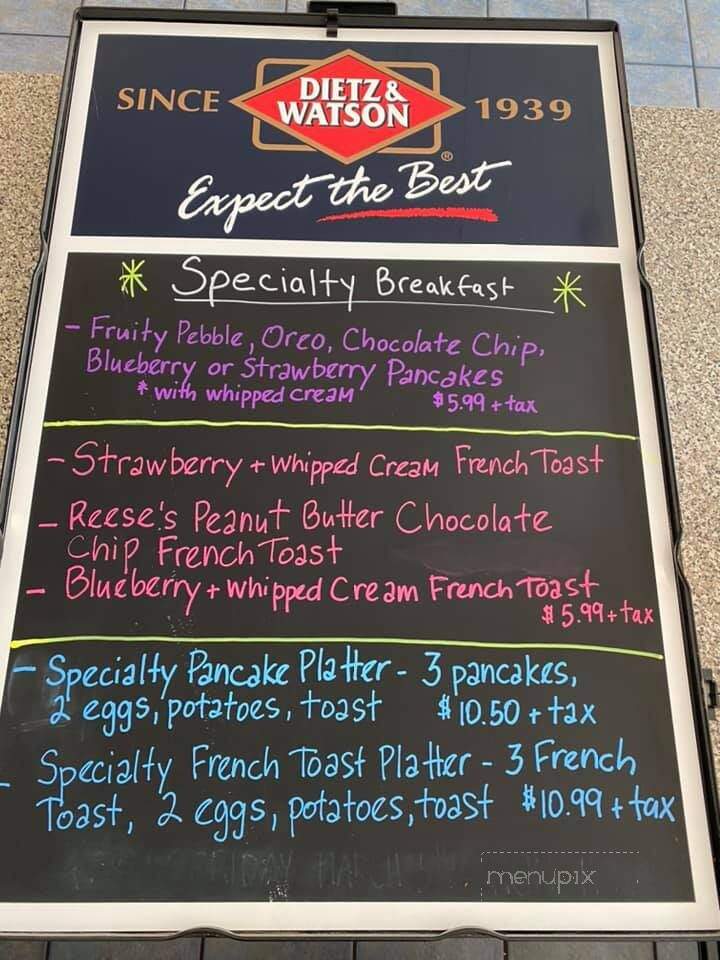 SINCE DIETZ & WATSON 1939
®
Expect the Best
* Specialty Breakfast *
- Fruity Pebble, Oreo, Chocolate Chip,
Blueberry or Strawberry Pancakes
* with whipped cream $5.99 + tax
- Strawberry + Whipped Cream French Toast
- Reese's Peanut Butter Chocolate
Chip French Toast
- Blueberry + Whipped Cream French Toast
$5.99 + tax
- Specialty Pancake Platter - 3 pancakes,
2 eggs, potatoes, toast $10.50 + tax
- Specialty French Toast Platter - 3 French
Toast, 2 eggs, potatoes, toast $10.99 + tax
menupix